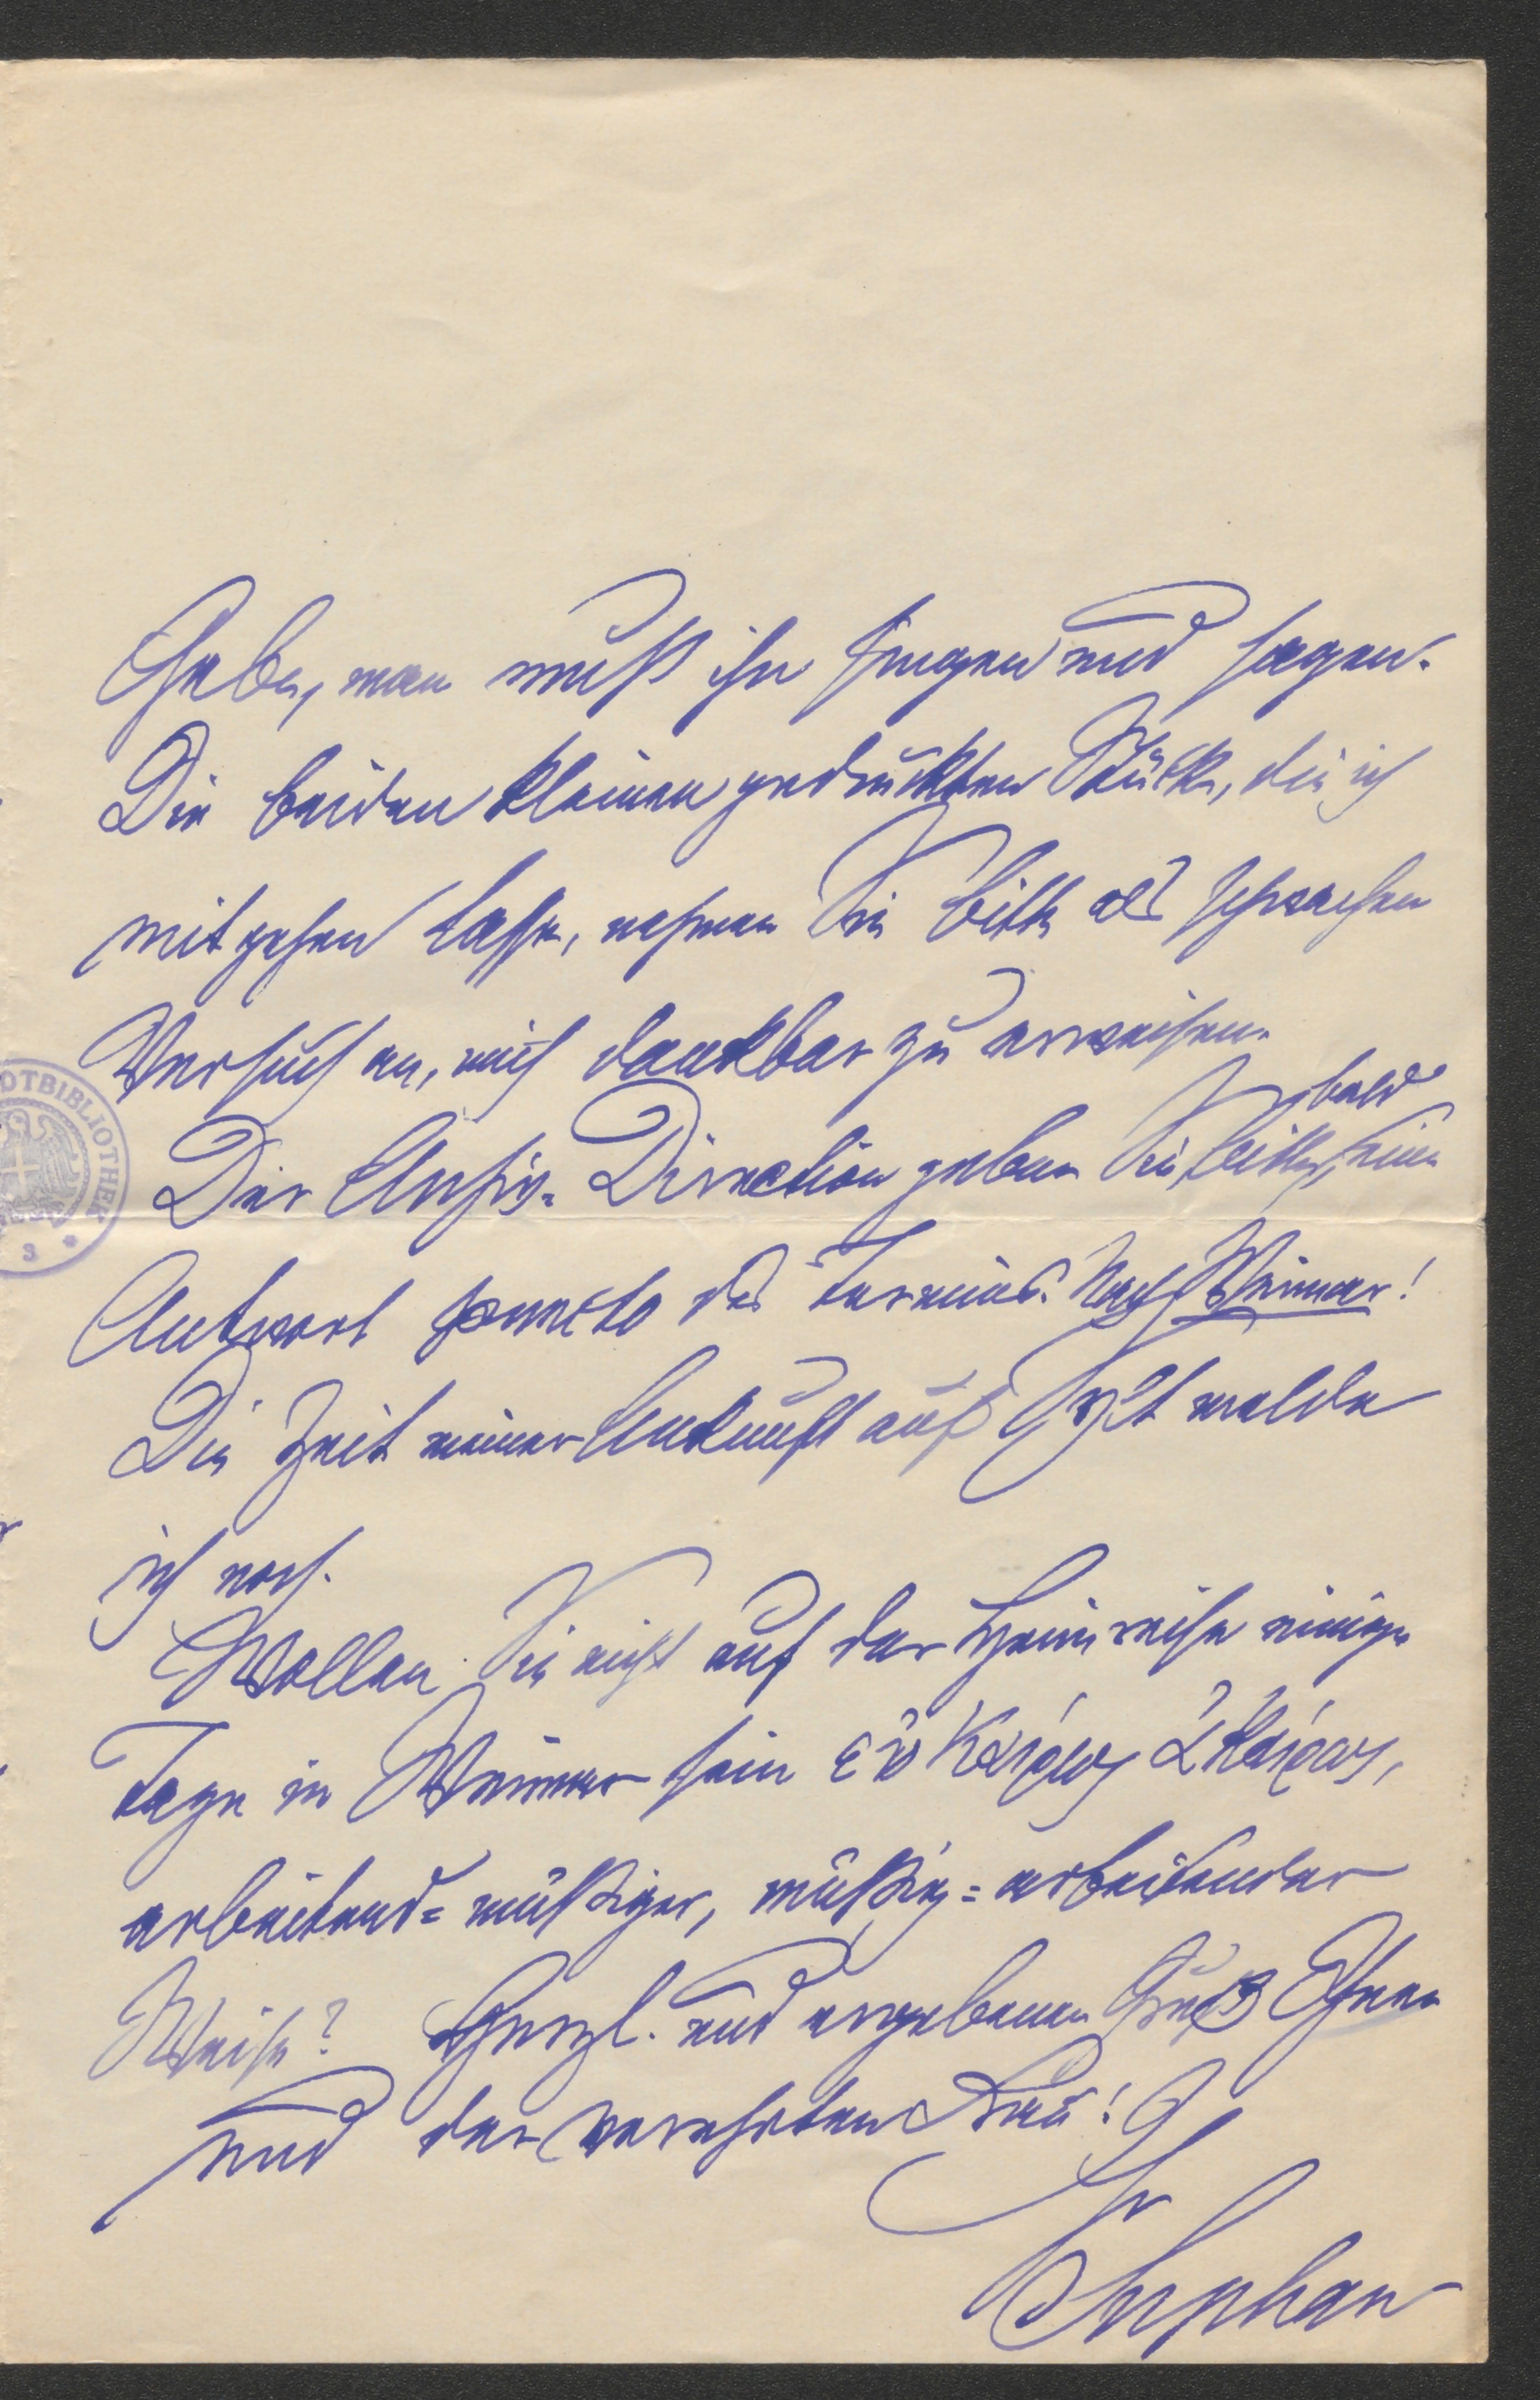 Gabe, man muß ihn singen und sagen.
Die beiden kleinen gedruckten Stücke, die ich
mitgehen lasse, nehmen Sie bitte als schwachen
Versuch an, mich dankbar zu erweisen.
bald
Der Archiv-Direction geben Sie, bitte, eine
Antwort puncto des Termins. Nach Weimar!
Die Zeit meiner Ankunft auf Sylt melde
ich noch.
Wollen Sie nicht auf der Heimreise einige
Tage in Weimar sein εὐκαίρως ἀκαίρως,
arbeitend-müßiger, müßig-arbeitender
Weise? Herzl. und ergebenen Gruß Ihnen
und der verehrten Frau!
Ihr
Suphan
OTBIBLIOTHEK